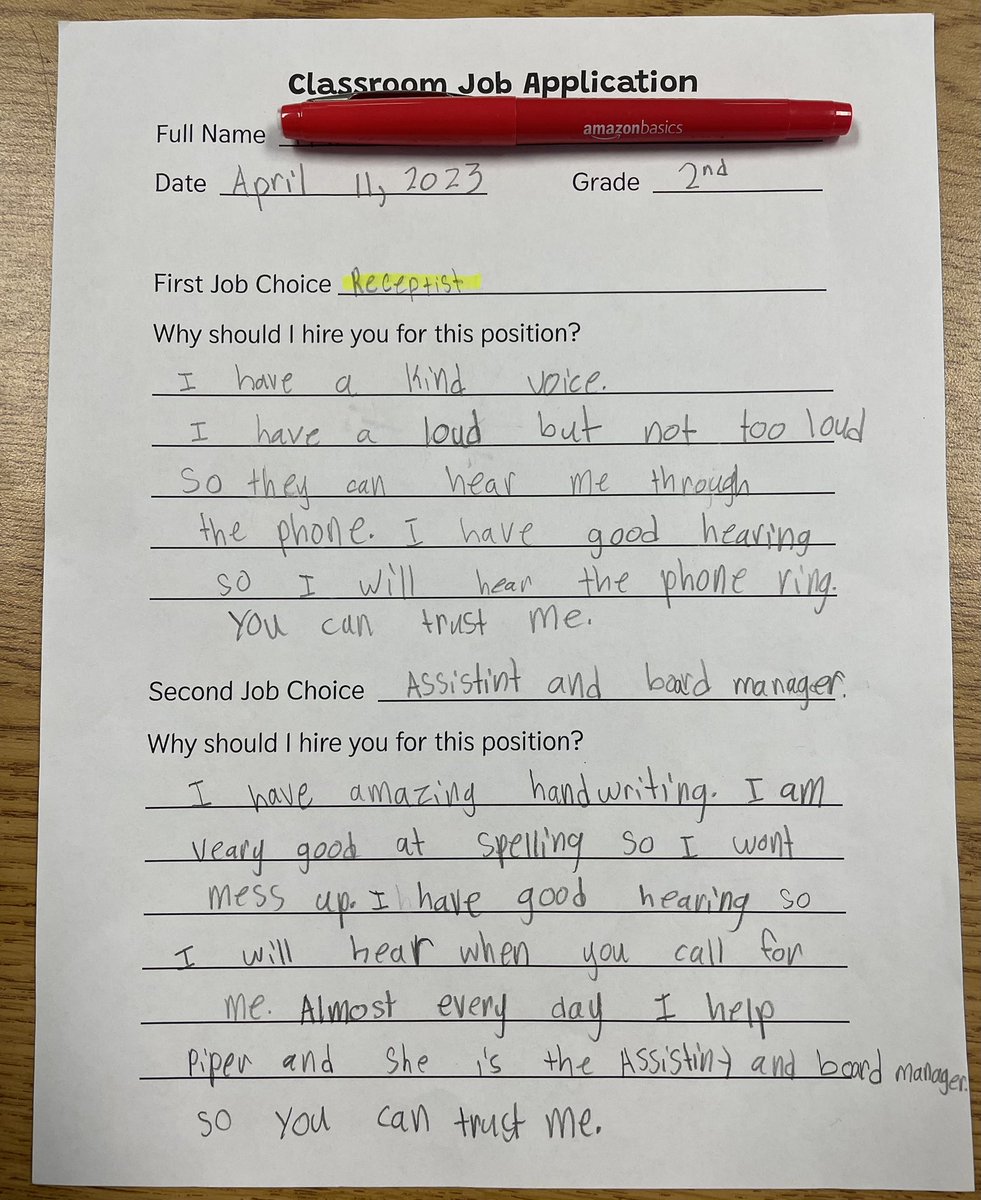 Classroom Job Application
Full Name
amazonbasics
Date April 11, 2023 Grade 2nd
First Job Choice Receptist
Why should I hire you for this position?
I have a kind voice.
I have a loud but not too loud
So they can hear me through
the phone. I have good hearing
so I will hear the phone ring.
You can trust me.
Second Job Choice Assistint and board manager.
Why should I hire you for this position?
I have amazing handwriting. I am
veary good at spelling so I wont
mess up. I have good hearing so
I will hear when you call for
me. Almost every day I help
Piper and she is the Assistint and board manager.
so you can trust me.